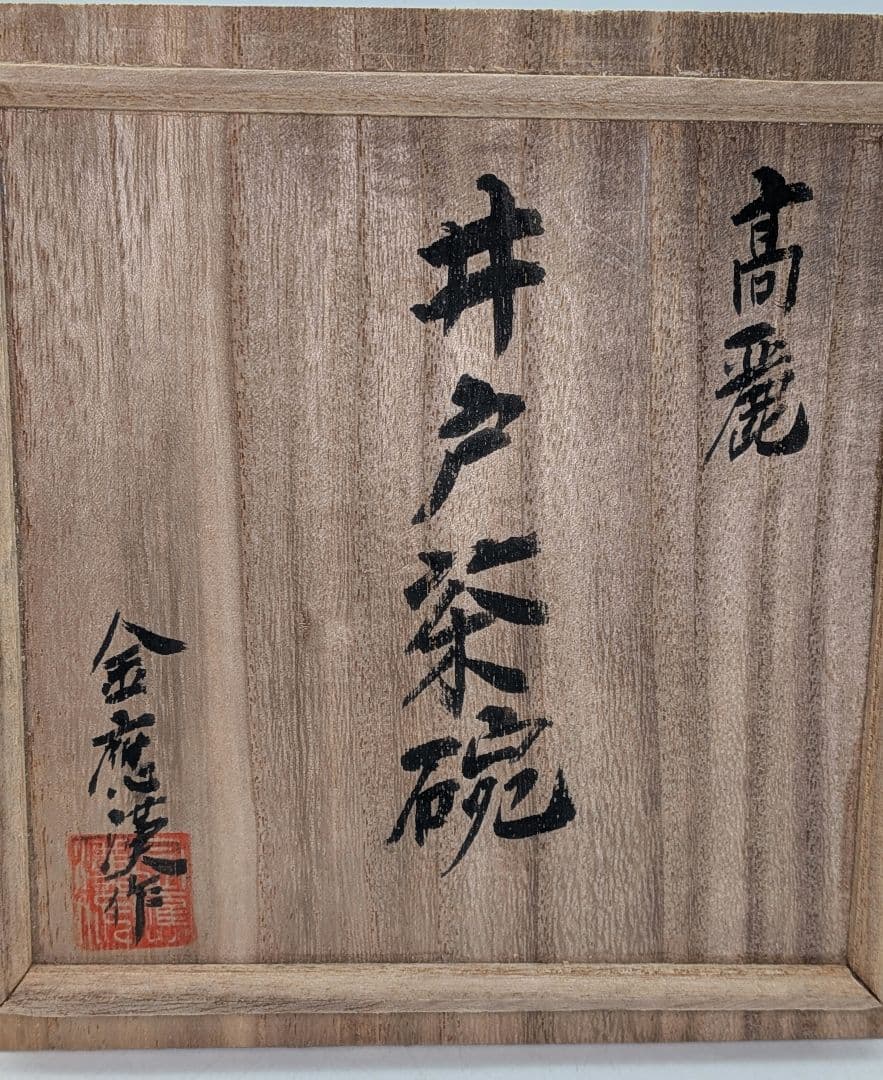 高麗
井戸茶碗
金應漢作